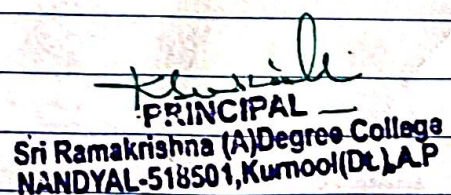 PRINCIPAL
Sri Ramakrishna (A)Degree College
NANDYAL-518501,Kurnool(Dt.),A.P